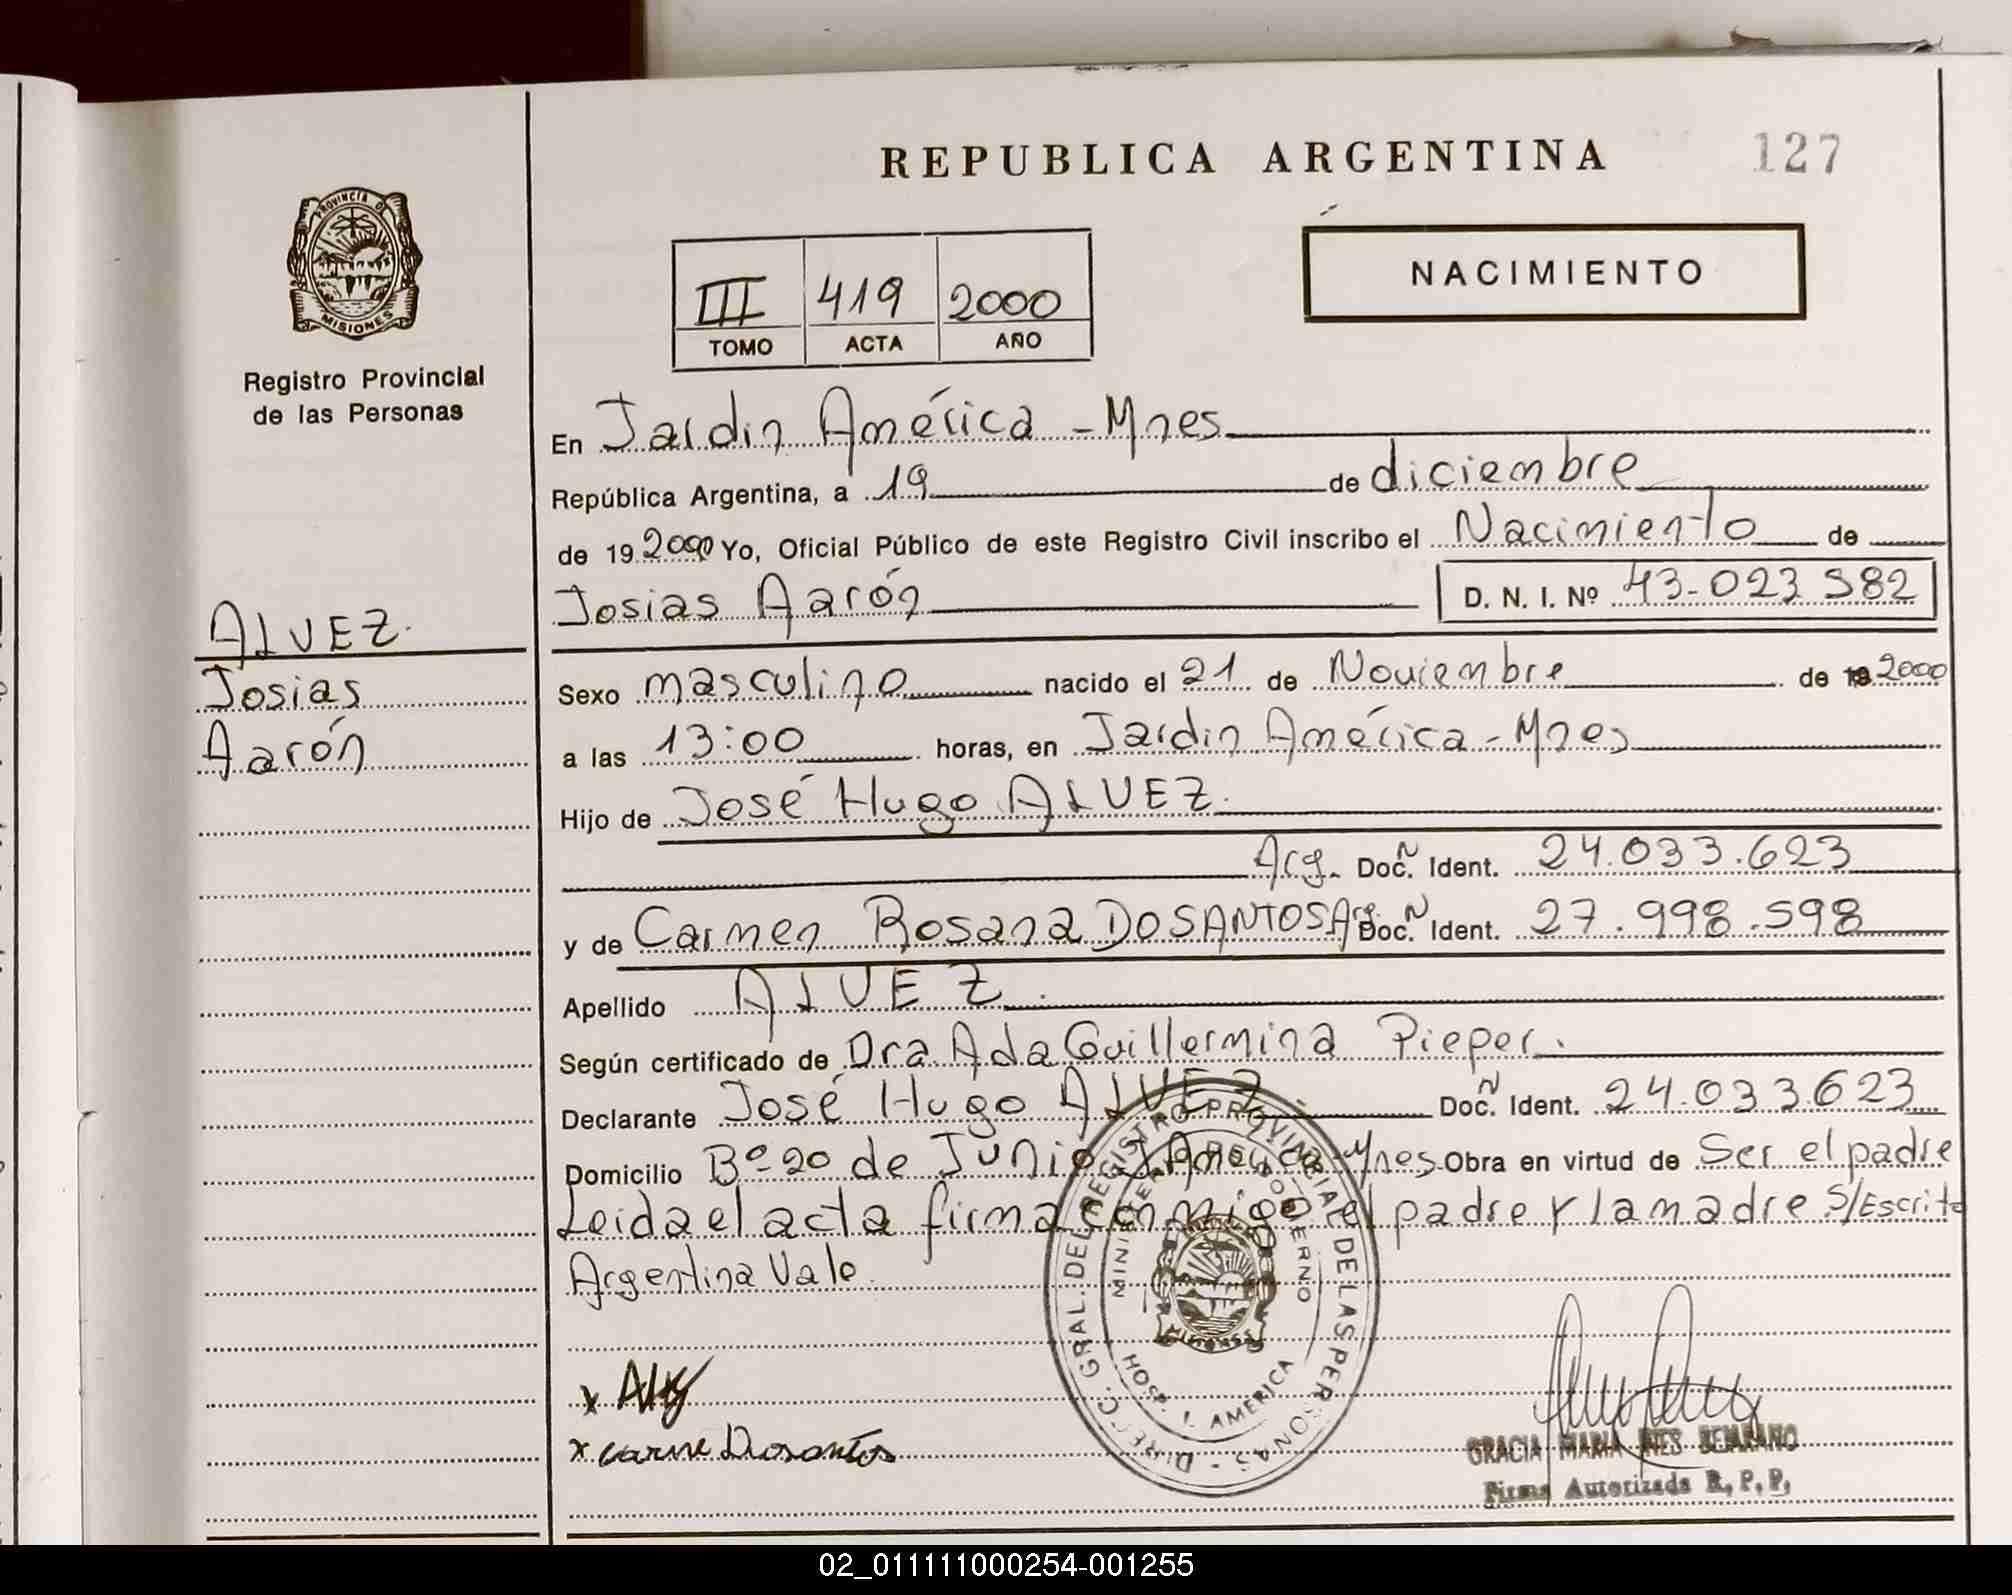 REPUBLICA ARGENTINA
127
PROVINCIA DE
MISIONES
Registro Provincial
de las Personas
NACIMIENTO
III 419 2000
TOMO ACTA AÑO
En Jardin América - Mnes
República Argentina, a 19 de diciembre
de 19 2000 Yo, Oficial Público de este Registro Civil inscribo el Nacimiento de
Josias Aarón D. N. I. Nº 43-023 582
ALVEZ.
Josias
Aarón
Sexo masculino nacido el 21 de Noviembre de 19 2000
a las 13:00 horas, en Jardin América - Mnes
Hijo de José Hugo ALVEZ.
Arg. Doc. N Ident. 24.033.623
y de Carmen Rosana DOSANTOS Arg. Doc. N Ident. 27.998.598
Apellido ALVEZ.
Según certificado de Dra Ada Guillermina Pieper.
Declarante José Hugo ALVEZ Doc. N Ident. 24.033.623
Domicilio Bº 20 de Junio J América Mnes Obra en virtud de Ser el padre
Leida el acta firma conmigo el padre y la madre S/Escrito
Argentina Vale.
DIREC. GRAL. DEL REGISTRO PROVINCIAL DE LAS PERSONAS
MINISTERIO DE GOBIERNO
MISIONES
HOSP. J. AMERICA
x
x carme Dosantos
GRACIA MARIA INES BEJARANO
Firma Autorizada R. P. P.
02_011111000254-001255